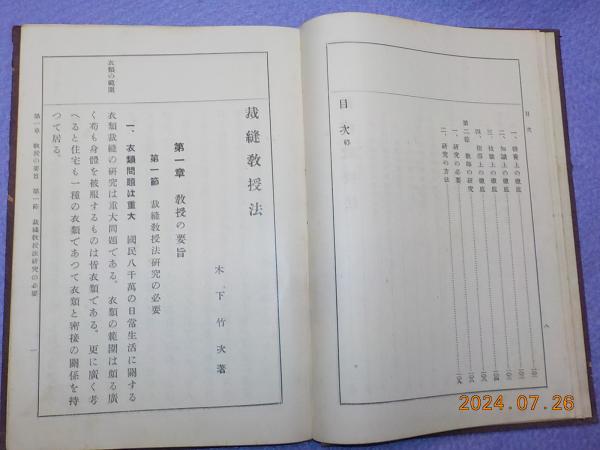 目次
八
一、修養上の徹底
二、知識上の徹底
三、技能上の徹底
四、指導上の徹底
第二節 教師の研究
一、研究の必要
二、研究の方法
目次 終
裁縫教授法
木下竹次著
第一章 教授の要旨
第一節 裁縫教授法研究の必要
衣類の範圍
一、衣類問題は重大 國民八千萬の日常生活に關する
衣類裁縫の研究は重大問題である。衣類の範圍は頗る廣
く苟も身體を被服するものは皆衣類である。更に廣く考
へると住宅も一種の衣類であつて衣類と密接の關係を持
つて居る。
第一章 教授の要旨 第一節 裁縫教授法研究の必要
一
2024.07.26